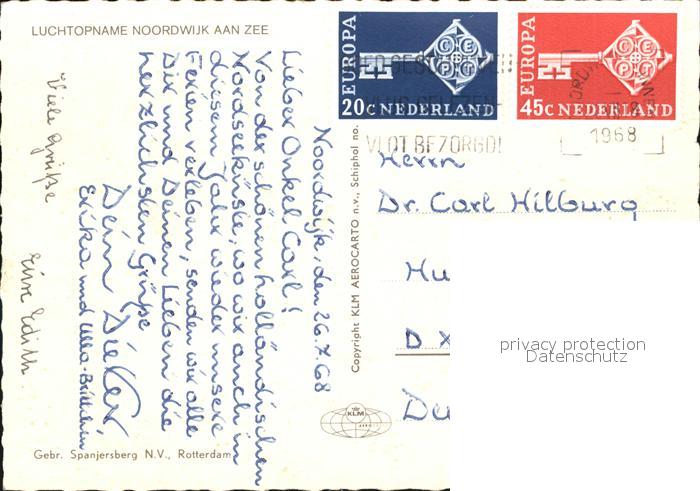 LUCHTOPNAME NOORDWIJK AAN ZEE
Noordwijk, den 26.7.68
Lieber Onkel Carl!
Von der schönen holländischen
Nordseeküste, wo wir auch in
diesem Jahr wieder unsere
Ferien verleben, senden wir alle
Dir und Deinen Lieben die
herzlichsten Grüße
Dein Dieter
Erika und Ulla-Brittchen
Viele Grüße
Eure Edith.
Gebr. Spanjersberg N.V., Rotterdam
Copyright KLM AEROCARTO n.v., Schiphol no.
KLM
EUROPA
CEPT
20c NEDERLAND
EUROPA
CEPT
45c NEDERLAND
VLOT BEZORGD!
1968
Herrn
Dr. Carl Hilburg
Hu
D X
Du
privacy protection
Datenschutz